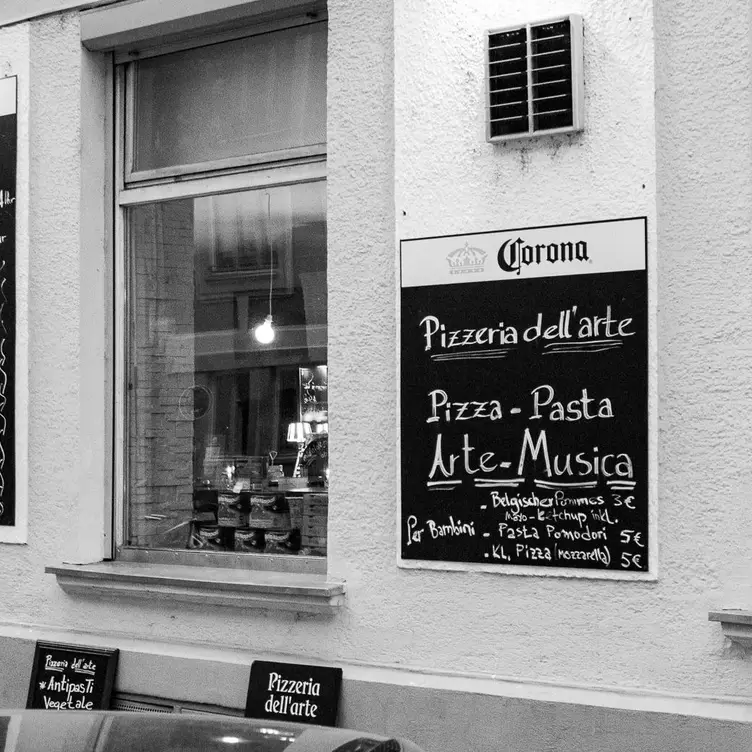 Corona
Pizzeria dell'arte
Pizza - Pasta
Arte - Musica
- Belgischer Pommes 3€
Mayo - Ketchup inkl.
Per Bambini - Pasta Pomodori 5€
- KL. Pizza (mozzarella) 5€
Pizzeria dell'arte
* Antipasti
Vegetale
Pizzeria
dell'arte